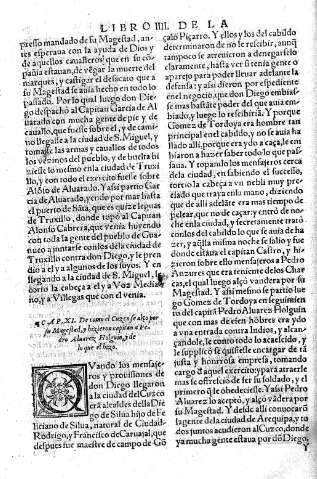 LIBRO IIII. DE LA
presso mandado de su Magestad, an
tes esperaua con la ayuda de Dios y
de aquellos caualleros que en su cō-
pañia estauan, de vēgar la muerte del
marques, y castigar el desacato que a
su Magestad se auia hecho en todo lo
passado. Por lo qual luego don Die-
go despachò al Capitan Garcia de Al
uarado con mucha gente de pie y de
cauallo, que fuesse sobre el, y de cami-
no llegasse a la ciudad de S. Miguel, y
tomasse las armas y cauallos de todos
los vezinos del pueblo, y de buelta hi
ziesse lo mesmo en la ciudad de Truxi
llo, y con todo el exercito fuesse sobre
Alōso de Aluarado. Y assi partio Gar
cia de Aluarado, yendo por mar hasta
el puerto de Sāta, que es quinze leguas
de Truxillo, donde topò al Capitan
Alonso Cabrera, que venia huyendo
con toda la gente del pueblo de Goa-
nuco a juntarse con los dela ciudad de
Truxillo contra don Diego, y le pren
dio a el y a algunos de los suyos. Y en
llegando a la ciudad de S. Miguel,
corto la cabeça a el y a Voz Media
no, y a Villegas que con el venia.
CAP. XI. De como el Cuzco se alço por
su Magestad, y hizieron capitan a Pe
dro Aluarez Holguin, y de
lo que el hizo.
QVando los mensaje-
ros y prouisiones de
don Diego llegaron
a la ciudad del Cuzco
erā alcaldes della Die
go de Silua hijo de Fe
liciano de Silua, natural de Ciudad-
Rodrigo, y Francisco de Carauajal, que
despues fue maestre de campo de Gō
çalo Piçarro. Y ellos y los del cabildo
determinaron de no le rescibir, aunq̄
tampoco se atreuieron a denegarselo
claramente, hasta ver si tenia gente o
aparejo para poder lleuar adelante la
defensa; y assi dixeron por espediente
en el negocio, que don Diego embias-
se mas bastāte poder del que auia em-
biado, y luego lo rescibirià. Y porque
Gomez de Tordoya era hombre tan
principal en el cabildo, y no se auia ha
llado alli, porque era ydo a caça, le em
biaron a hazer saber todo lo que pas-
saua. Y topando los mensajeros cerca
dela ciudad, en sabiendo el successo,
torcio la cabeça a vn nebli muy pre
ciado que traya en la mano, diziendo
que de alli adelante era mas tiempo de
pelear, que no de caçar y entrò de no-
che en la ciudad, y secretamente tratò
con los del cabildo lo que se auia de ha
zer, y aq̄lla misma noche se salio y fue
donde estaua el capitan Castro, y hi-
zieron sobre ello mensajeros a Pedro
Anzures que era teniente de los Char-
cas, el qual luego alçò vandera por su
Magestad. Y assi mesmo se partio lue
go Gomez de Tordoya en seguimien
to del capitā Pedro Aluarez Holguin
que con mas de cien hōbres era ydo a
vna entrada contra Indios, y alcan-
çandole, le conto todo lo acaescido, y
le supplicò se quisiesse encargar de tā
justa y honrosa empresa, tomando
cargo de aquel exercito, y para atraerle
mas se offrescio de ser su soldado, y el
primero q̄ le obedeciesse. Y assi Pedro
Aluarez lo aceptò, y alçò vādera por su
Magestad. Y desde alli conuocarō la
gente de la ciudad de Arequipa, y to-
dos juntos acudieron al Cuzco, donde
ya mucha gente estaua por dō Diego,
Y